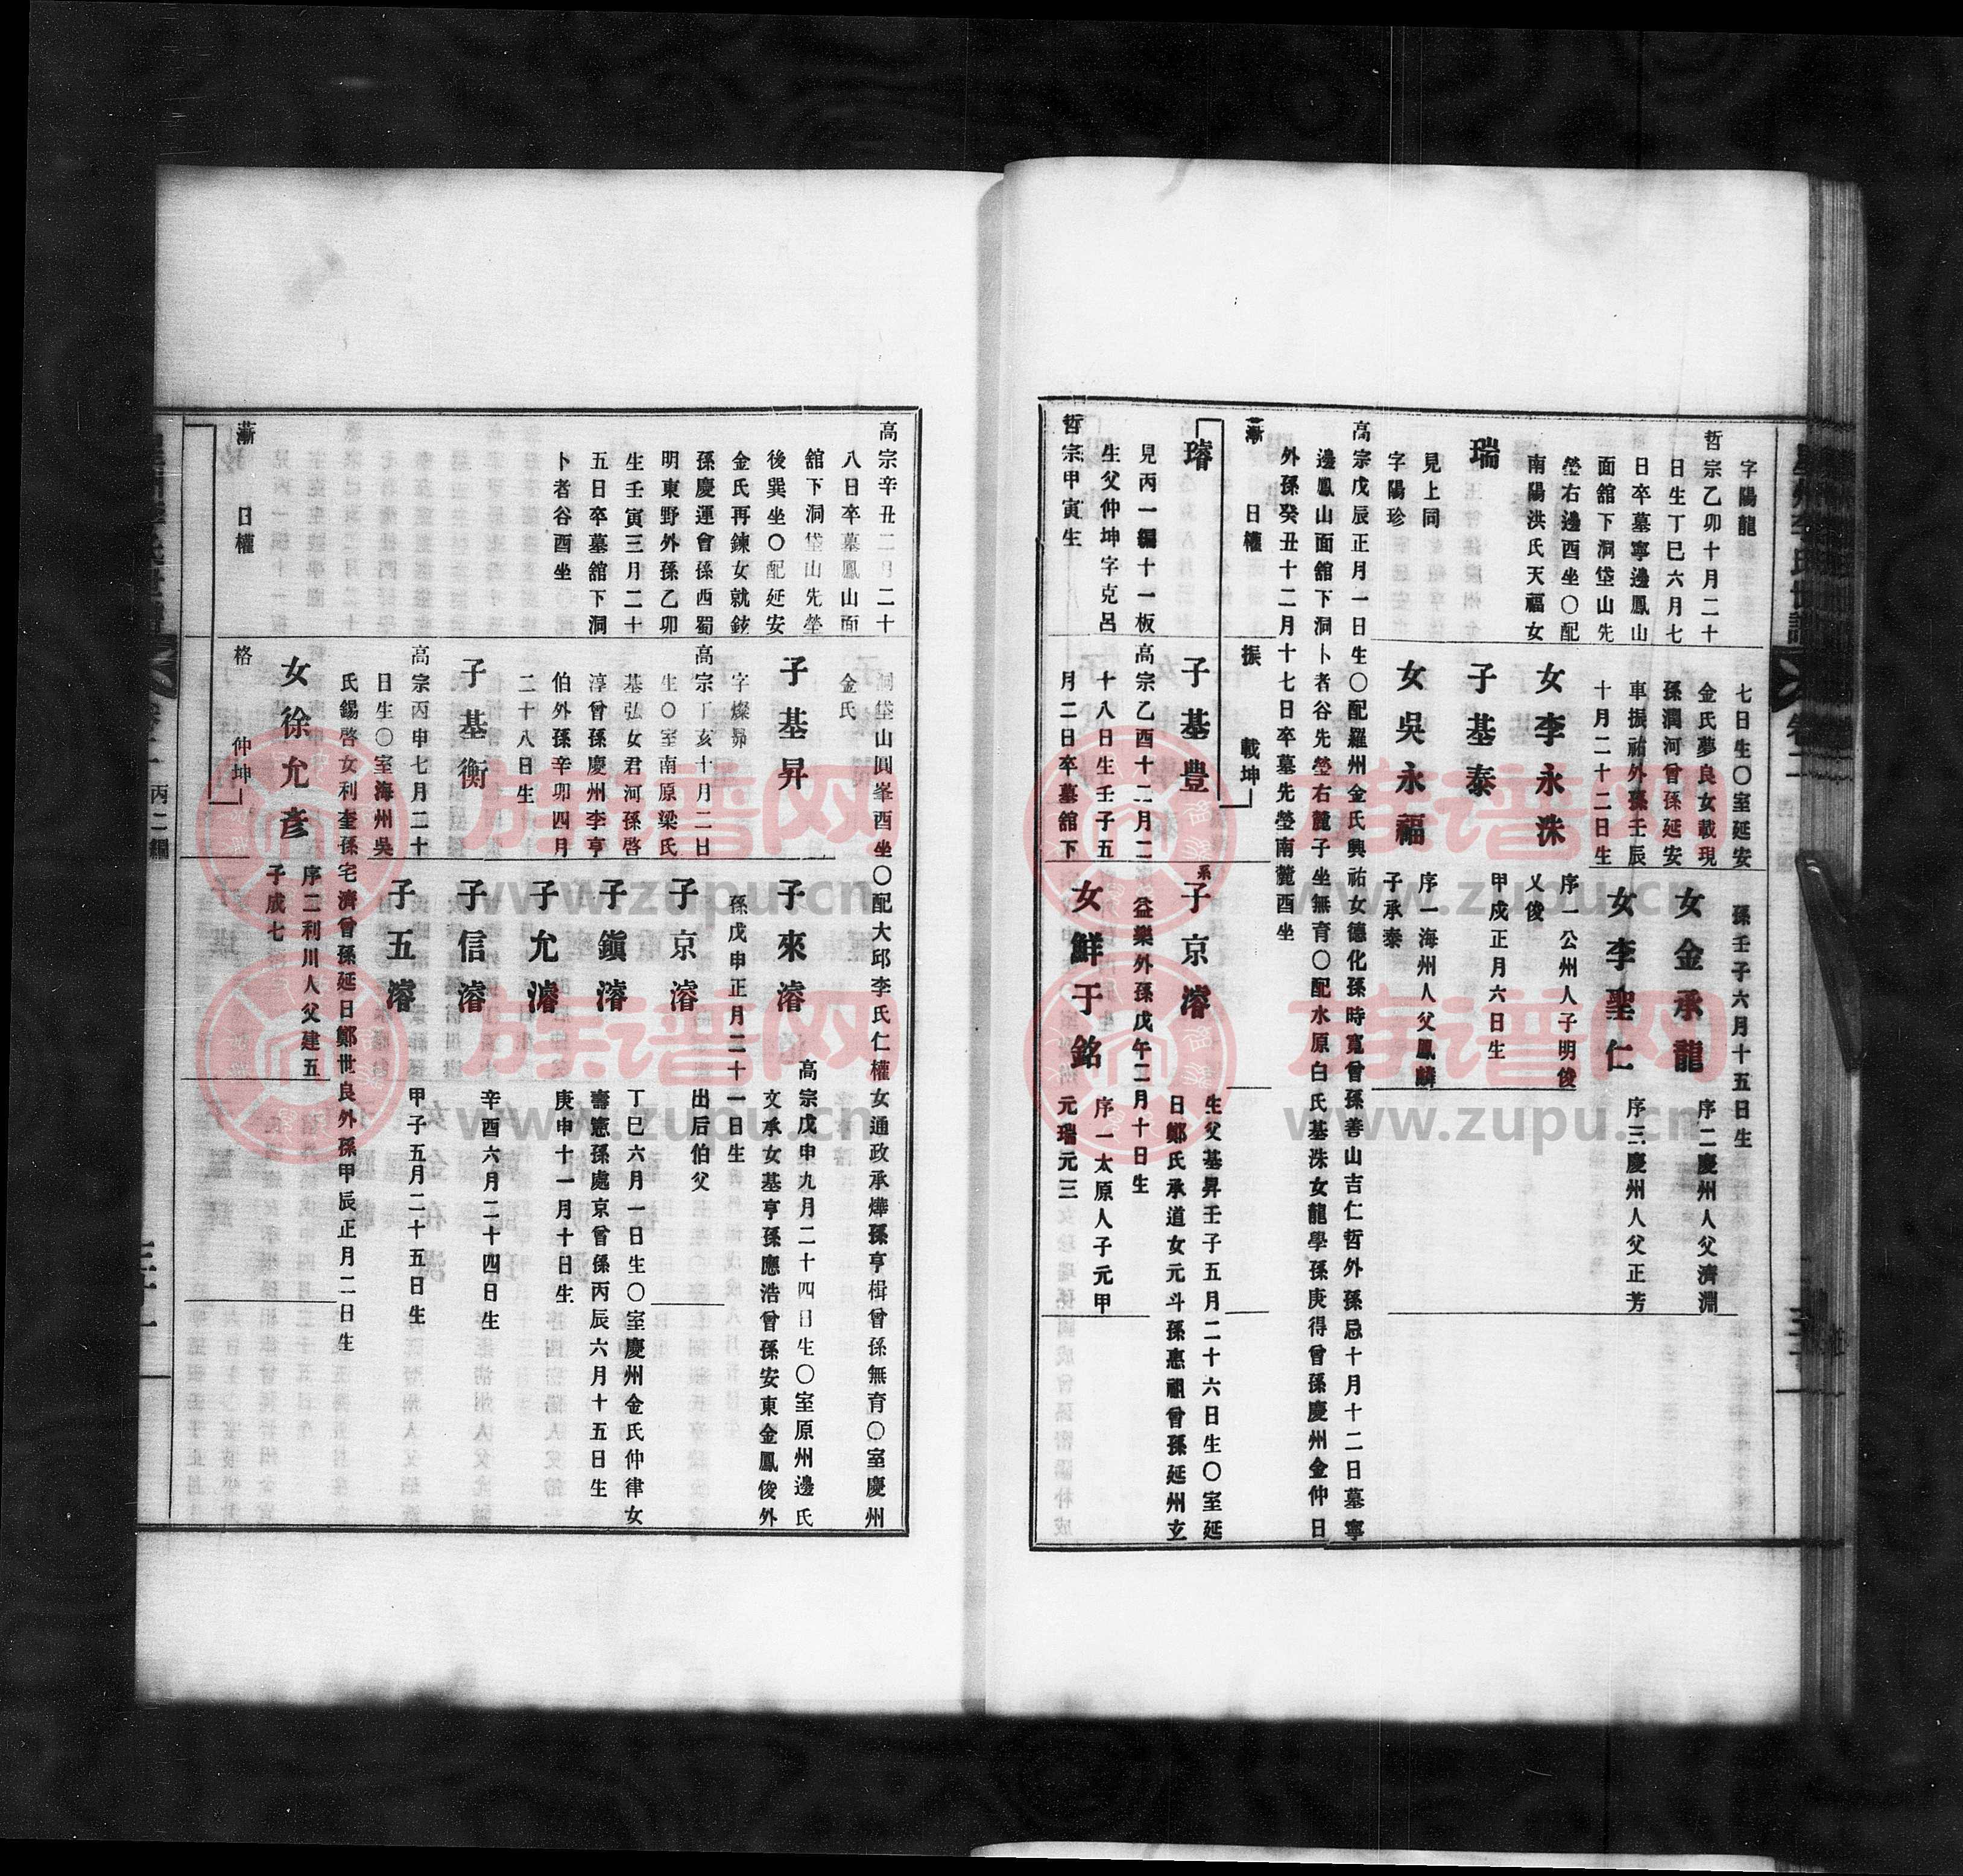 字陽龍
哲宗乙卯十月二十
日生丁巳六月七
日卒墓寧邊鳳山
面舘下洞垈山先
塋右邊酉坐〇配
南陽洪氏天福女
瑞
見上同
字陽珍
高宗戊辰正月一日生〇配羅州金氏興祐女德化孫時寬曾孫善山吉仁哲外孫忌十月十二日墓寧
邊鳳山面舘下洞卜者谷先塋右麓子坐無育〇配水原白氏基洙女龍學孫庚得曾孫慶州金仲日
外孫癸丑十二月十七日卒墓先塋南麓酉坐
七日生〇室延安
金氏夢良女載現
孫潤河曾孫延安
車振祐外孫壬辰
十月二十二日生
女李永洙
子基泰
女吳永福
孫壬子六月十五日生
女金承龍
序二慶州人父濟淵
女李聖仁
序三慶州人父正芳
序一公州人子明俊
乂俊
甲戌正月六日生
序一海州人父鳳麟
子承泰
漸
日權
振
載坤
璿
見丙一編十一板
生父仲坤字克呂
哲宗甲寅生
子基豊
高宗乙酉十二月二
十八日生壬子五
月二日卒墓舘下
系子京濬
生父基昇壬子五月二十六日生〇室延
日鄭氏承道女元斗孫惠祖曾孫延州玄
益樂外孫戊午二月十日生
女鮮于銘
序一太原人子元甲
元瑞元三
高宗辛丑二月二十
八日卒墓鳳山面
舘下洞垈山先塋
後巽坐〇配延安
金氏再鍊女就鉉
孫慶運曾孫西蜀
明東野外孫乙卯
生壬寅三月二十
五日卒墓舘下洞
卜者谷酉坐
洞垈山圓峯酉坐〇配大邱李氏仁權女通政承燁孫亨楫曾孫無育〇室慶州
金氏
子基昇
字燦昴
高宗丁亥十月二日
生〇室南原梁氏
基弘女君河孫啓
淳曾孫慶州李亨
伯外孫辛卯四月
二十八日生
子基衡
高宗丙申七月二十
日生〇室海州吳
氏錫啓女利奎孫宅濟曾孫延日鄭世良外孫甲辰正月二日生
女徐允彦
序二利川人父建五
子成七
子來濬
高宗戊申九月二十四日生〇室原州邊氏
文承女基亨孫應浩曾孫安東金鳳俊外
孫戊申正月二十一日生
子京濬
出后伯父
子鎭濬
丁巳六月一日生〇室慶州金氏仲律女
壽憲孫處京曾孫丙辰六月十五日生
子允濬
庚申十一月十日生
子信濬
辛酉六月二十四日生
子五濬
甲子五月二十五日生
漸
日權
格
仲坤
丙二編
族谱网
www.zupu.cn
族谱网
www.zupu.cn
族谱网
www.zupu.cn
族谱网
www.zupu.cn